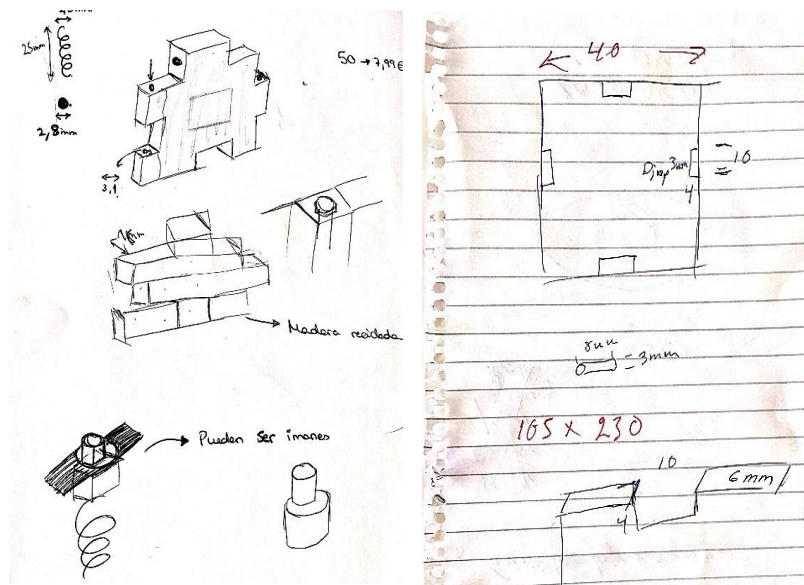 25mm
2,8mm
50 → 7,99€
3,1
Madera reciclada
Pueden ser imanes
40
3mm
10
4
= 3mm
105 x 230
10
6mm
4